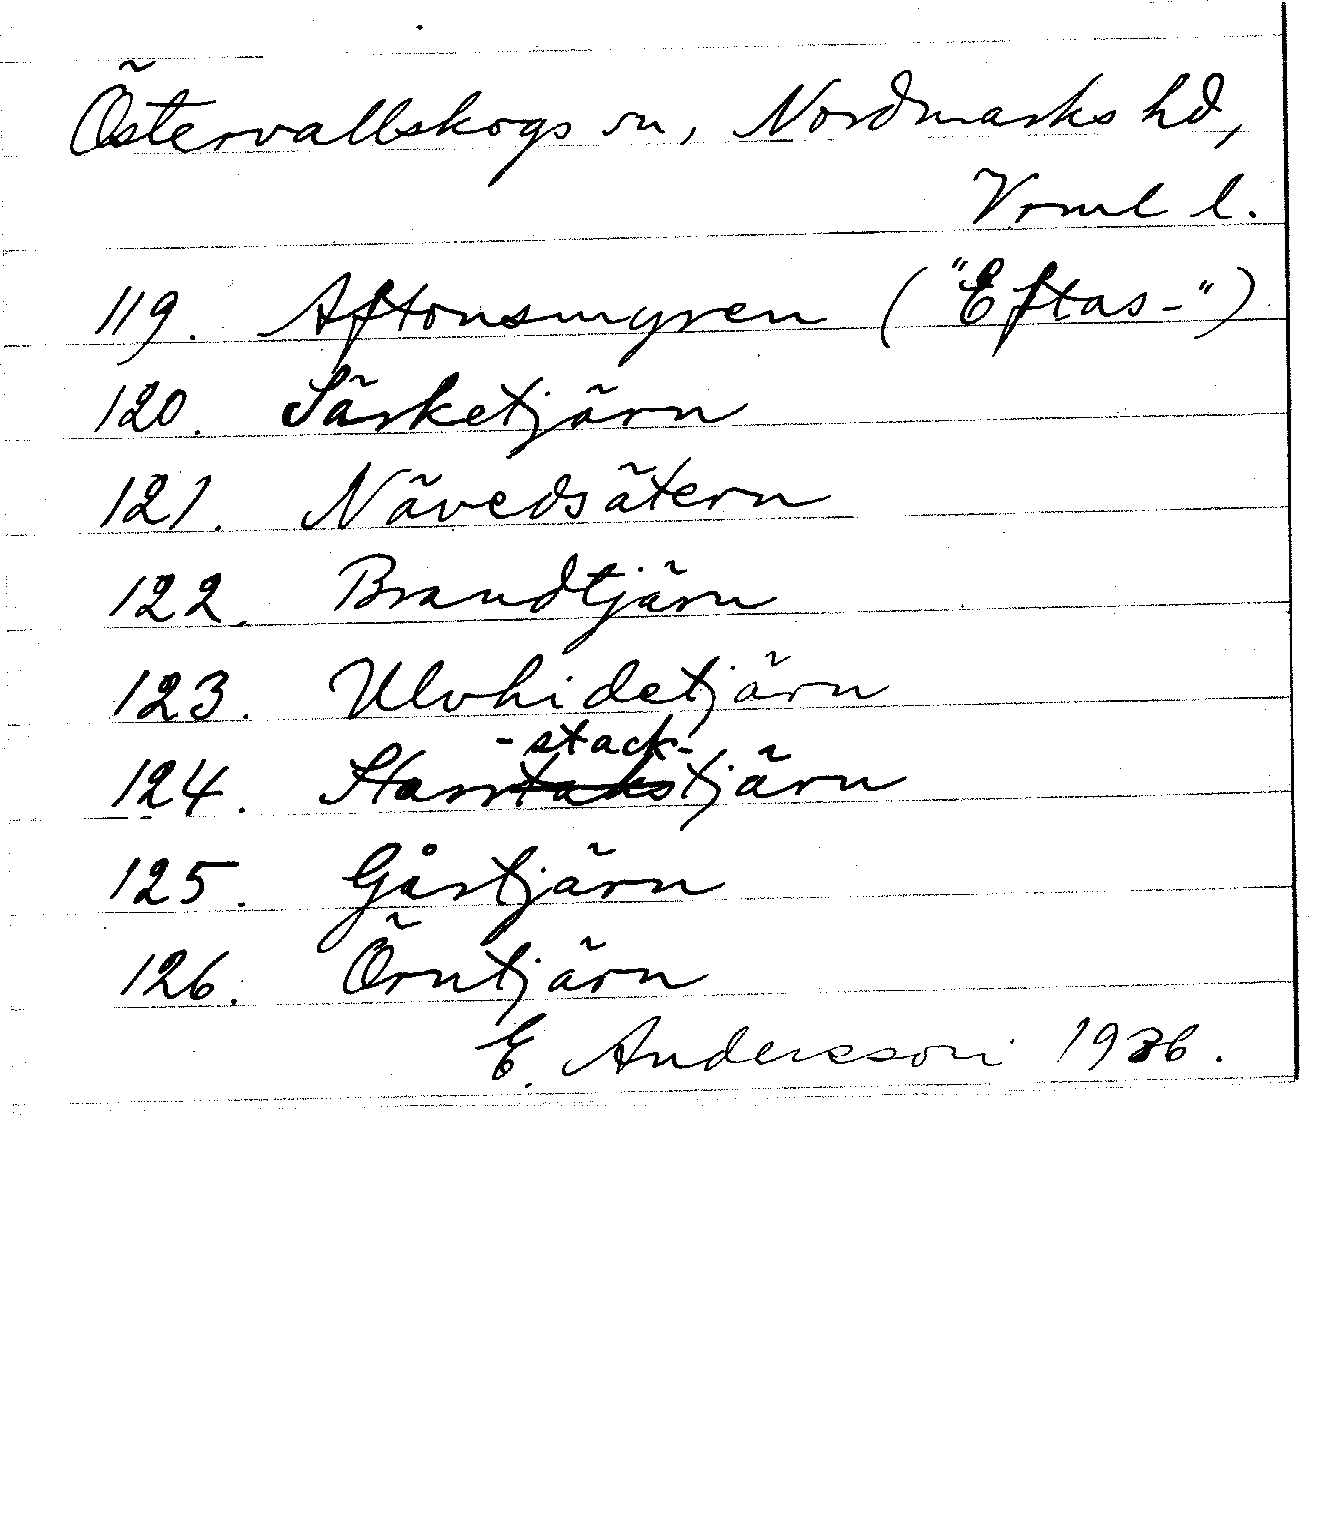 Östervallskogs sn, Nordmarks hd,
Vrml l.
119. Aftonsmyren ("Eftas-")
120. Särketjärn
121. Nävedsätern
122. Brandtjärn
123. Ulvhidetjärn
-stack-
124. Starrtakstjärn
125. Gåstjärn
126. Örntjärn
E. Andersson 1936.